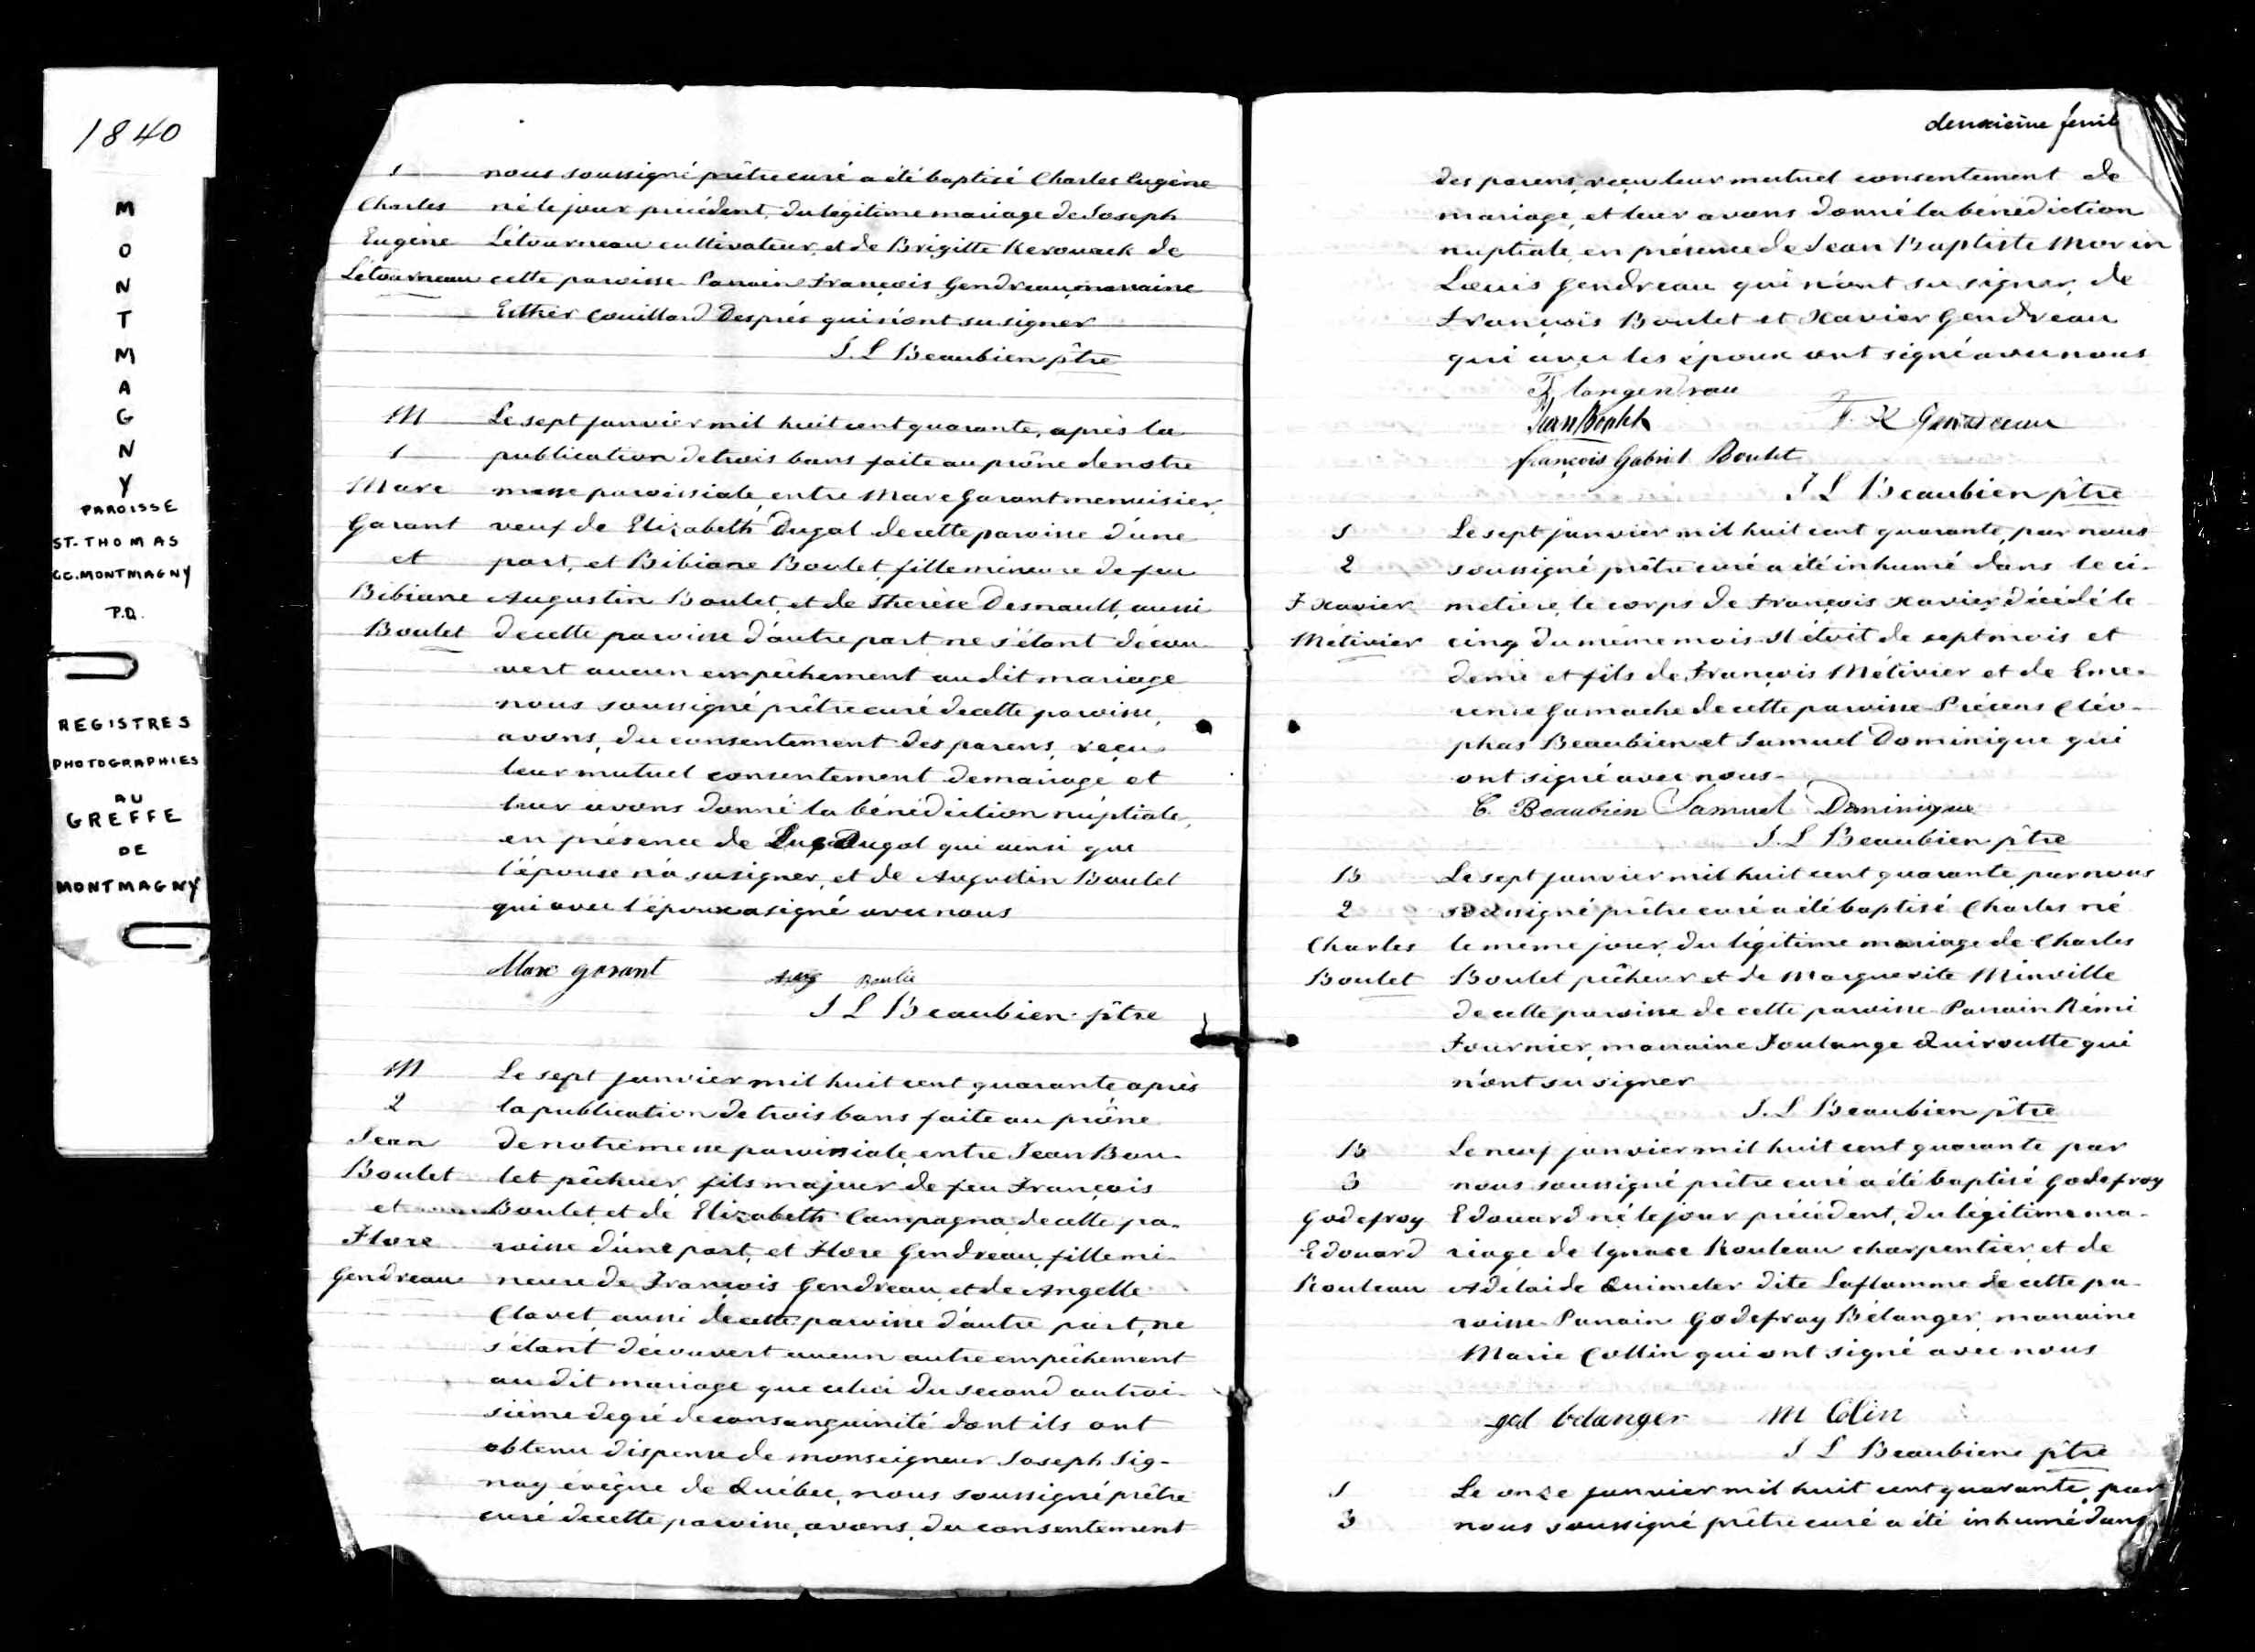 1840
MONTMAGNY
PAROISSE
ST-THOMAS
CC. MONTMAGNY
P.Q.
REGISTRES
PHOTOGRAPHIES
AU
GREFFE
DE
MONTMAGNY
1
Charles
Eugène
Létourneau
nous soussigné prêtre curé a été baptisé Charles Eugène
né le jour précédent, du légitime mariage de Joseph
Létourneau cultivateur, et de Brigitte Kerouack de
cette paroisse. Parrain François Gendreau, marraine
Esther Couillard Després qui n'ont su signer
J. L Beaubien ptre
M
1
Marc
Garant
et
Bibiane
Boulet
Le sept janvier mil huit cent quarante, après la
publication de trois bans faite au prône de notre
messe paroissiale, entre Marc Garant menuisier,
veuf de Elizabeth Dugal de cette paroisse d'une
part, et Bibiane Boulet, fille mineure de feu
Augustin Boulet, et de Therèse Desnault, aussi
de cette paroisse d'autre part ne s'étant décou-
vert aucun empêchement au dit mariage
nous soussigné prêtre curé de cette paroisse,
avons, du consentement des parens, reçu
leur mutuel consentement de mariage et
leur avons donné la bénédiction nuptiale,
en présence de Dugal qui ainsi que
l'épouse n'a su signer, et de Augustin Boulet
qui avec l'époux a signé avec nous
Marc garant Aug Boulé
J L Beaubien ptre
M
2
Jean
Boulet
et
Flore
Gendreau
Le sept janvier mil huit cent quarante après
la publication de trois bans faite au prône
de notre messe paroissiale, entre Jean Bou-
let pêcheur, fils majeur de feu François
Boulet, et de Elizabeth Campagna de cette pa-
roisse d'une part, et Flore Gendreau, fille mi-
neure de François Gendreau, et de Angelle
Clavet, aussi de cette paroisse d'autre part, ne
s'étant découvert aucun autre empêchement
au dit mariage que celui du second au troi-
sième degré de consanguinité dont ils ont
obtenu dispense de monseigneur Joseph Sig-
nay évêque de Québec, nous soussigné prêtre
curé de cette paroisse, avons, du consentement
deuxième feuil
des parens, reçu leur mutuel consentement de
mariage, et leur avons donné la bénédiction
nuptiale, en présence de Jean Baptiste Morin
Louis Gendreau qui n'ont su signer, de
François Boulet et Xavier Gendreau
qui avec les époux ont signé avec nous
Jean Boulet F. X Gendreau
françois Gabriel Boulet
J L Beaubien ptre
S
2
F Xavier
Métivier
Le sept janvier mil huit cent quarante, par nous
soussigné prêtre curé a été inhumé dans le ci-
metiere, le corps de François Xavier, décédé le
cinq du même mois. Il étoit de sept mois et
demi et fils de François Métivier et de Eme-
rence Gamache de cette paroisse. Présens Cléo-
phas Beaubien et Samuel Dominique qui
ont signé avec nous.
C. Beaubien Samuel Dominique
J. L Beaubien ptre
B
2
Charles
Boulet
Le sept janvier mil huit cent quarante par nous
soussigné prêtre curé a été baptisé Charles né
le même jour, du légitime mariage de Charles
Boulet pêcheur et de Marguerite Minville
de cette paroisse de cette paroisse. Parrain Rémi
Fournier, marraine Soulange Quirouette qui
n'ont su signer
J. L Beaubien ptre
B
3
Godefroy
Edouard
Rouleau
Le neuf janvier mil huit cent quarante par
nous soussigné prêtre curé a été baptisé Godefroy
Edouard né le jour précédent, du légitime ma-
riage de Ignace Rouleau charpentier, et de
Adélaide Quimeler dite Laflamme de cette pa-
roisse. Parrain Godefroy Bélanger, marraine
Marie Collin qui ont signé avec nous
god belanger M Colin
J L Beaubien ptre
S
3
Le onze janvier mil huit cent quarante, par
nous soussigné prêtre curé a été inhumé dans